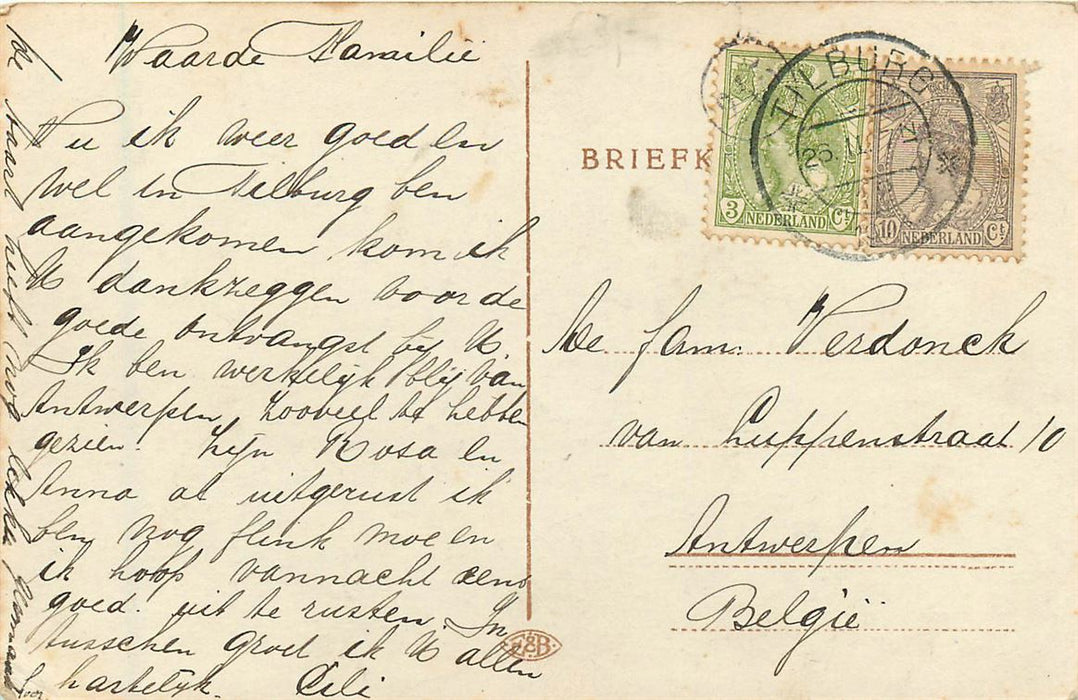 Waarde Familie
Nu ik weer goed en
wel in Tilburg ben
aangekomen kom ik
U dankzeggen voor de
goede ontvangst bij U
Ik ben werkelijk blij van
Antwerpen zooveel te hebben
gezien. Zijn Rosa en
Anna al uitgerust ik
ben nog flink moe en
ik hoop vannacht eens
goed uit te rusten. In
tusschen groet ik U allen
hartelijk. Cili
BRIEFK
TILBURG
26
3 NEDERLAND Ct
10 NEDERLAND Ct
De fam. Verdonck
van Luppenstraat 10
Antwerpen
België